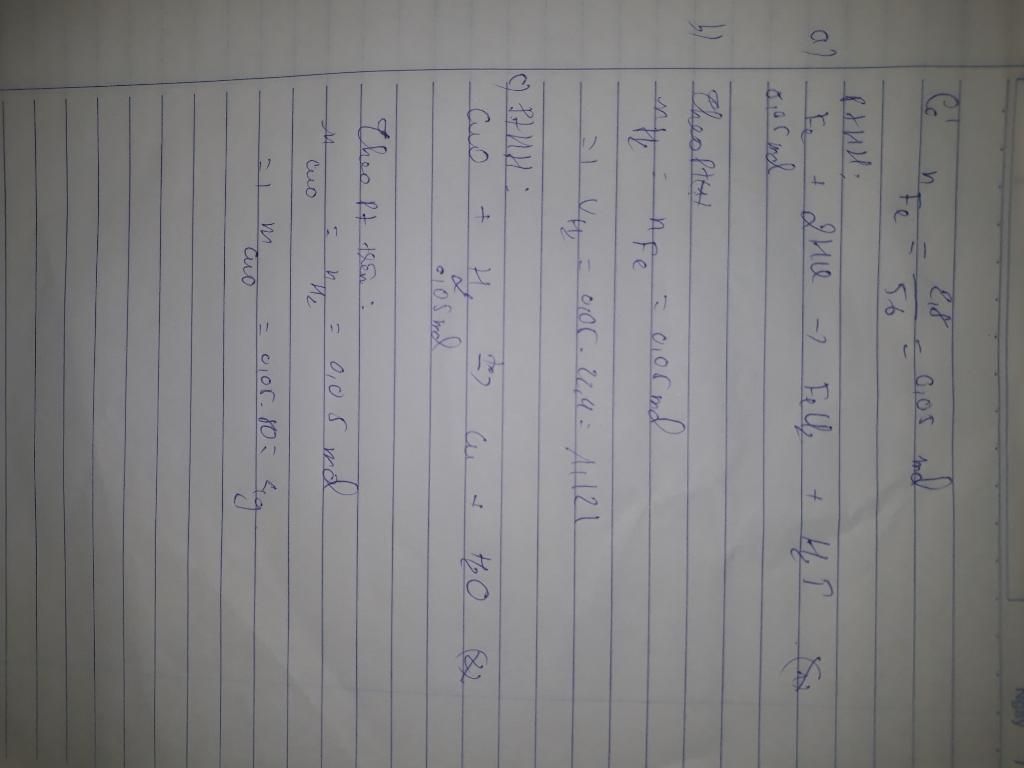 Có n Fe = 2,8 / 56 = 0,05 mol
PTHH:
a) Fe + 2HCl → FeCl2 + H2↑ (1)
0,05 mol
b) Theo PTHH
nH2 = nFe = 0,05 mol
=> VH2 = 0,05. 22,4 = 1,12 l
c) PTHH:
CuO + H2 → Cu + H2O (2)
0,05 mol
Theo pt trên:
n CuO = n H2 = 0,05 mol
=> m CuO = 0,05. 80 = 4g